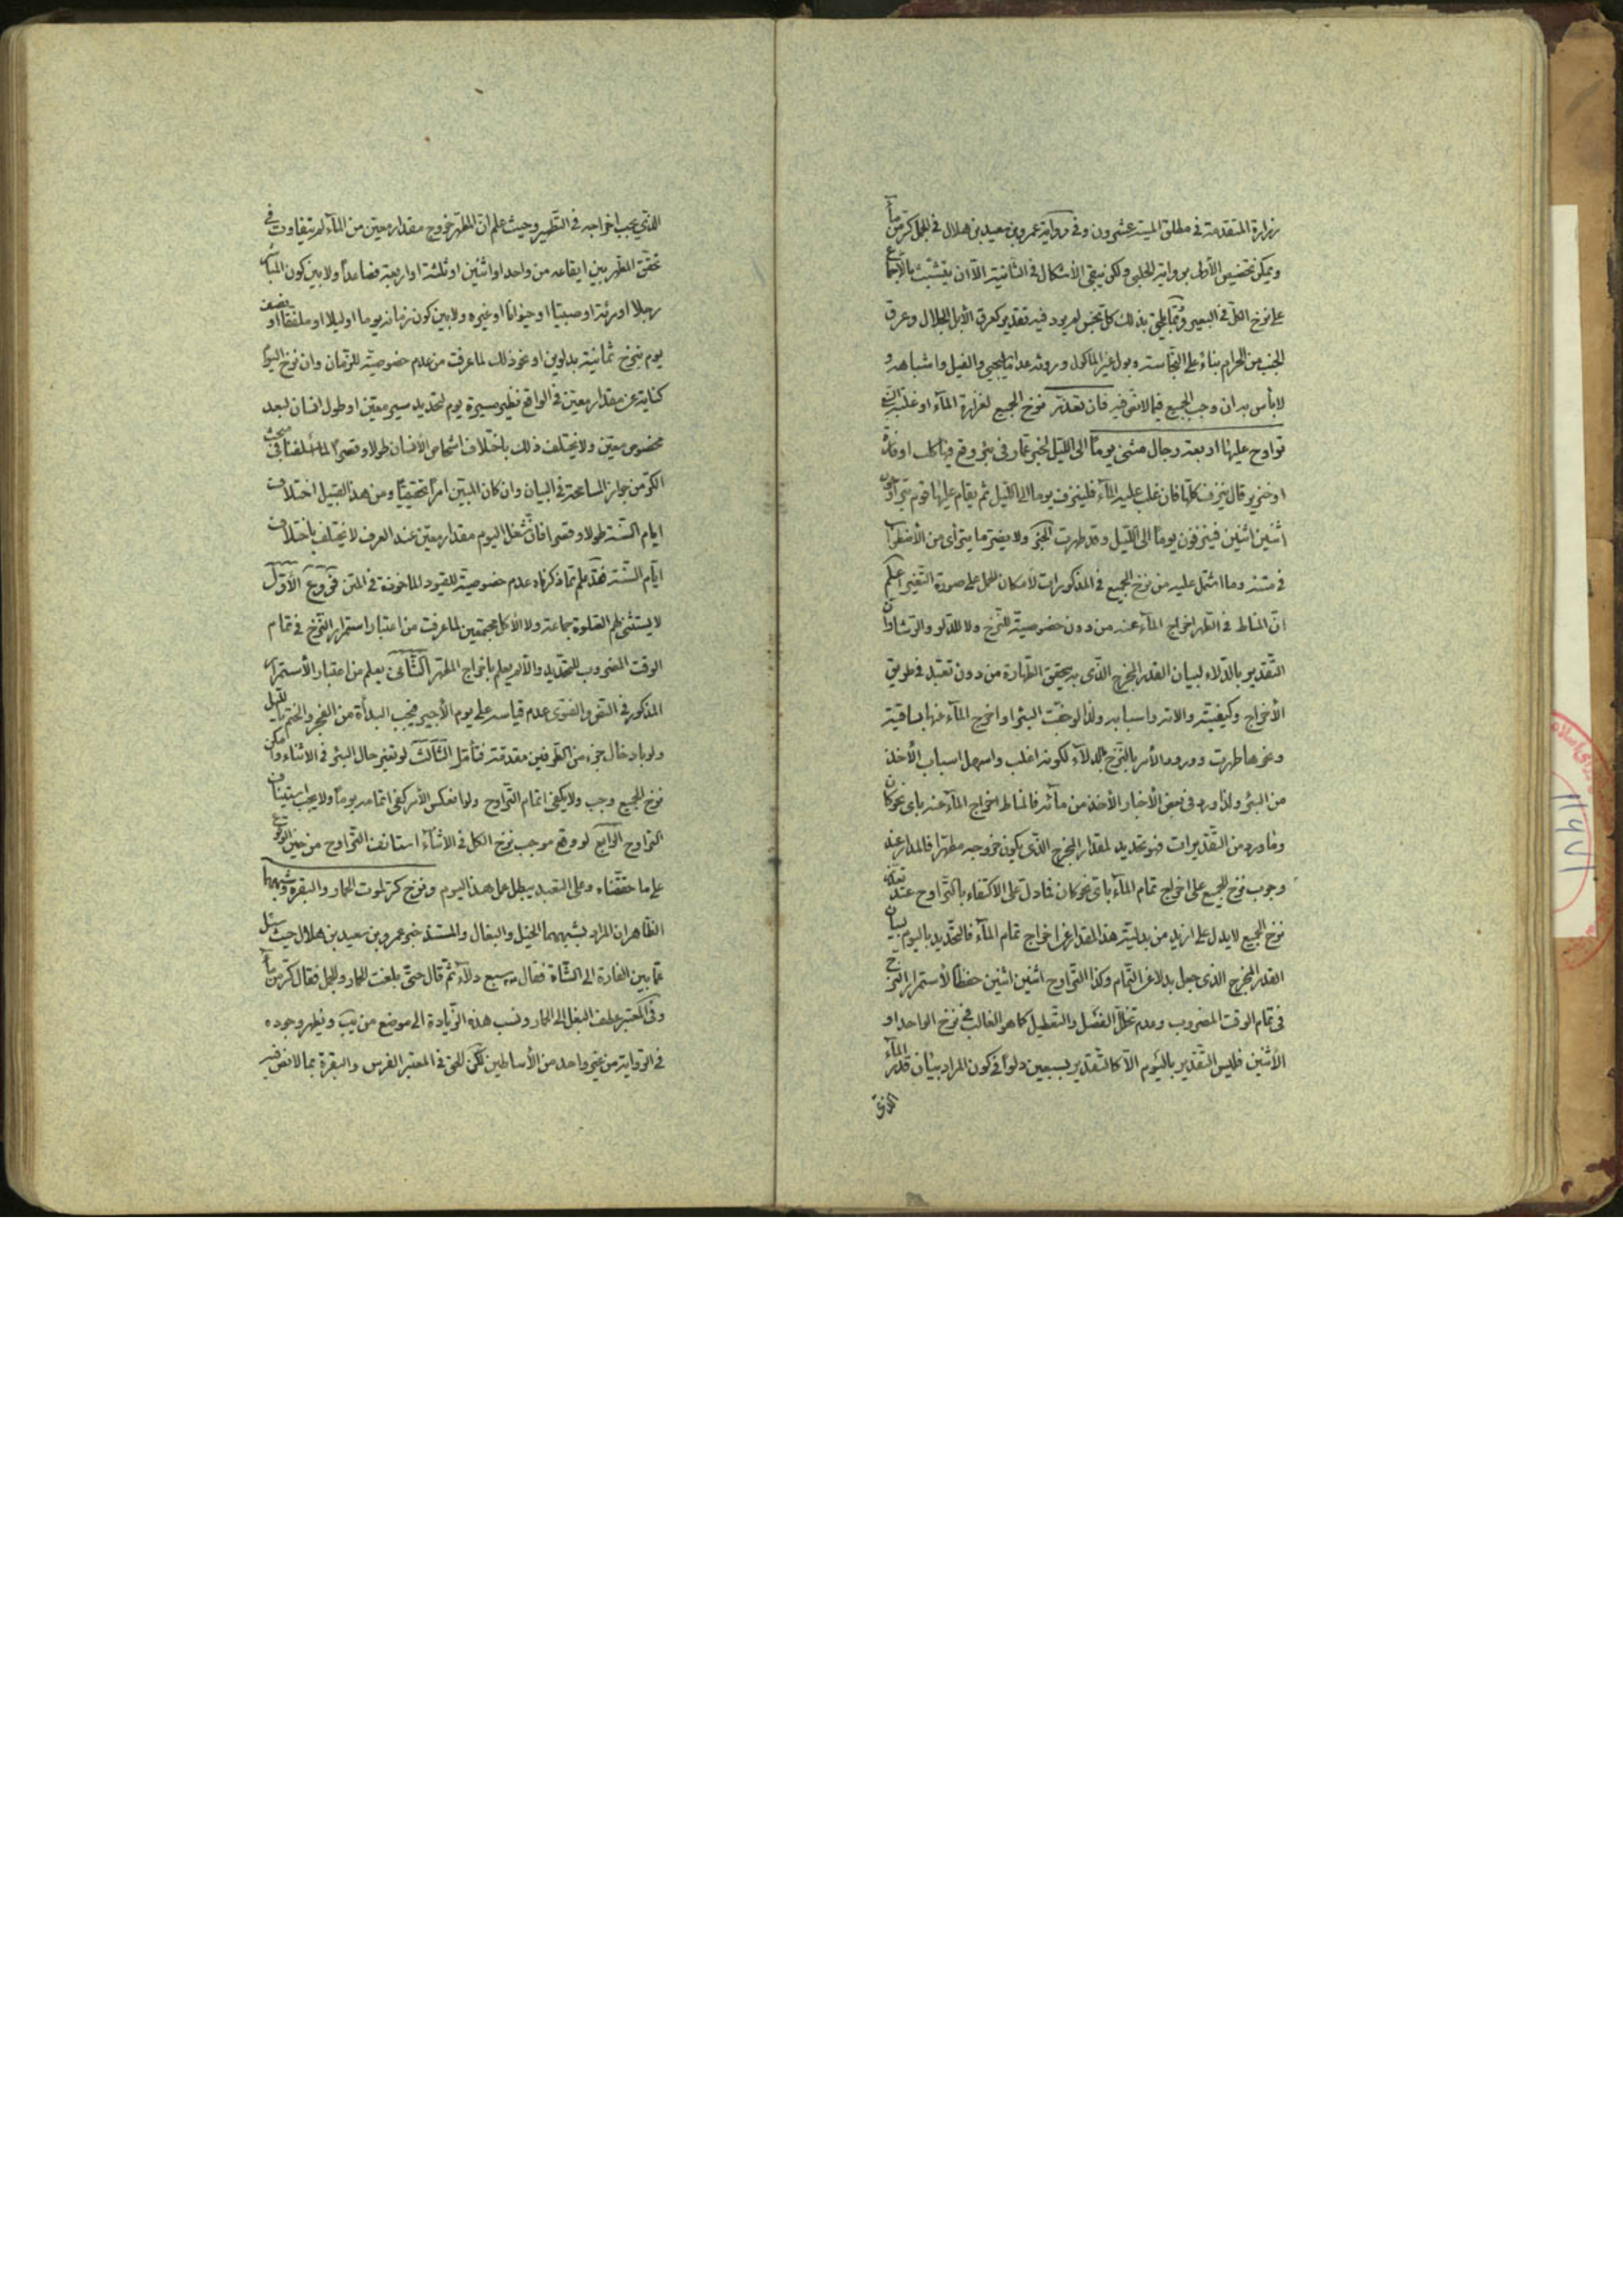 زرارة المتقدمة فى مطلق الميتة عشرون وفى رواية عمرو بن سعيد بن هلال فى الجمل كرّ من ماء
ويمكن تخصيص الأولى برواية الحلبى ولكن يبقى الأشكال فى الثانية الّا ان يتشبّث بالأجماع
على نزح الكل فى البعير وربّما يلحق بذلك كل نجس لم يرد فيه تقدير كعرق الأبل الجلال وعرق
الجنب من الحرام بناء على النّجاسة وبول غير المأكول وروثه عدا ما يجيئ والفيل واشباهه و
لا بأس به ان وجب الجميع فيما لا نصّ فيه فان تعذّر نزح الجميع لغزارة الماء او غلبته
تراوح عليها اربعة رجال مثنى يوماً الى الليل لخبر عمّار فى بئر وقع فيها كلب او فارة
او خنزير قال ينزف كلّها فان غلب عليه الماء فلينزف يوما الى الليل ثم يقام عليها قوم يتراوحون
اثنين اثنين فينزفون يوماً الى الليل وقد طهرت الخبر ولا يضر ما يترأى من الأضطراب
فى متنه وما اشتمل عليه من نزح الجميع فى المذكورات لأمكان الحمل على صورة التّغيير اعلم
انّ المناط فى التطهر اخراج الماء عنه من دون خصوصيّة للنّزح ولا للدّلو والرّشا وانّ
التّقدير بالدّلاء لبيان القدر المخرج الذى به يتحقق الطّهارة من دون تعبّد فى طريق
الأخراج وكيفيّته والاته واسبابه ولذا لو جفّت البئر او اخرج الماء عنها بساقية
ونحوها طهرت وورود الأمر بالنّزح بالدلاء لكونه اغلب واسهل اسباب الأخذ
من البئر ولذا ورد فى بعض الأخبار الأخذ من مائه فالمناط اخراج الماء عنه باى نحو كان
وما ورد من التّقديرات فهو تحديد لمقدار المخرج الذى يكون خروجه مطهّرا فالمدار عند
وجوب نزح الجميع على اخراج تمام الماء باى نحو كان فما دلّ على الاكتفاء بالتّراوح عند تعذّر
نزح الجميع لا يدل على ازيد من بدليّة هذا المقدار عن اخراج تمام الماء فالتّحديد باليوم بيان
القدر المخرج الذى جعل بدلا عن التّمام وكذا التّراوح اثنين اثنين حفظاً لأستمرار النّزح
فى تمام الوقت المضروب وعدم تخلّل الفصل والتّعطيل كما هو الغالب فى نزح الواحد او
الأثنين فليس التّقدير باليوم الّا كالتّقدير بسبعين دلواً فى كون المراد بيان قدر الماء
الذى
الذى يجب اخراجه فى التّطهير وحيث علم انّ المطهّر خروج مقدار معيّن من الماء لم يتفاوت فى
تحقق المطهّر بين ايقاعه من واحد او اثنين او ثلثة او اربعة فصاعداً ولا بين كون المباشر
رجلا او مرئة او صبيّا او حيوانا او غيره ولا بين كون زمانه يوما او ليلا او ملفّقا او نصف
يوم بنزح ثمانية بدلوين او نحو ذلك لما عرفت من عدم خصوصيّة للزّمان وان نزح اليوم
كناية عن مقدار معيّن فى الواقع نظير مسيرة يوم لتحديد سير معيّن او طول انسان لبعد
مخصوص معيّن ولا يختلف ذلك باختلاف اشخاص الأنسان طولا وقصراً لما اسلفنا فى مبحث
الكرّ من جواز المسامحة فى البيان وان كان المبيّن امراً تحقيقيّاً ومن هذا القبيل اختلاف
ايام السّنة طولا وقصرا فانّ شغل اليوم مقدار معيّن عند العرف لا يختلف باختلاف
ايّام السّنة فقد علم ممّا ذكرناه عدم خصوصيّة للقيود المأخوذة فى المتن فروع الأوّل
لا يستثنى لهم الصّلوة جماعة ولا الأكل مجتمعين لما عرفت من اعتبار استمرار النّزح فى تمام
الوقت المضروب للتحديد والّا لم يعلم باخراج المطهّر الثّانى يعلم من اعتبار الأستمرار
المذكور فى النصّ والفتوى عدم قياسه على يوم الأجير فيجب البدأة من الفجر والختم بالّليل
ولو بادخال جزء من الطّرفين مقدّمة فتأمّل الثّالث لو تغيّر حال البئر فى الاثناء وامكن
نزح الجميع وجب ولا يكفى اتمام التّراوح ولو انعكس الأمر كفى اتمامه يوماً ولا يجب استيناف
التراوح الرّابع لو وقع موجب نزح الكل فى الاثناء استانف التّراوح من حين الوقوع
على ما حققناه وعلى التعبد يبطل عمل هذا اليوم ونزح كرّ لموت الحمار والبقرة وشبههما
الظّاهر ان المراد بشبههما الخيل والبغال والمستند خبر عمرو بن سعيد بن هلال حيث سئل
عمّا بين الفارة الى الشّاة فقال سبع دلاء ثمّ قال حتّى بلغت الحمار والجمل فقال كرّ من ماء
وفى المعتبر عطف البغل الى الحمار ونسب هذه الزّيادة الى موضع من يب ويظهر وجوده
فى الرّواية من غير واحد من الأساطين لكن الحق فى المعتبر الفرس والبقرة بما لا نصّ فيه